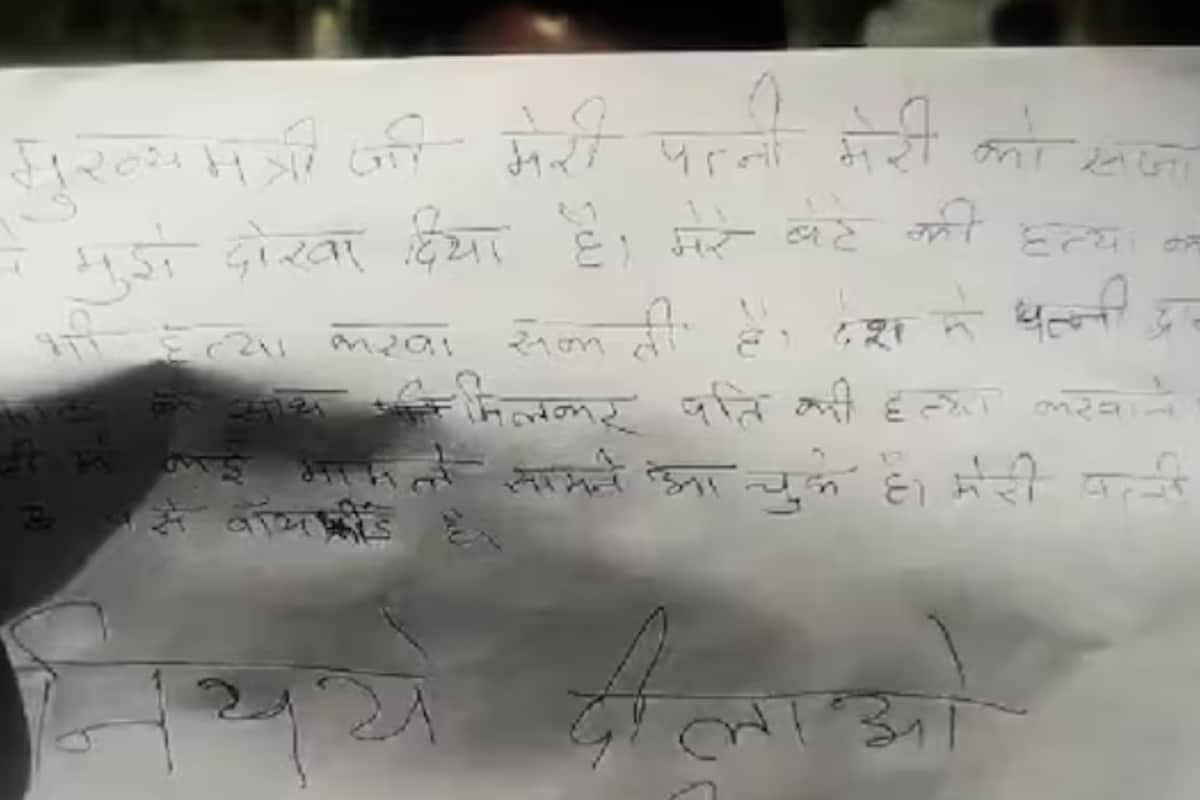 मुख्यमत्री जी मेरी पत्नी मेरी को सजा
मुझे दोखा दिया है। मेरे बेटे की हत्या
भी हत्या करवा सकती है। देश मे पत्नी
के साथ मिलकर पति की हत्या करवाने
मे कई मामले सामने आ चुके है। मेरी पत्नी
है।
नियये दीलाओ